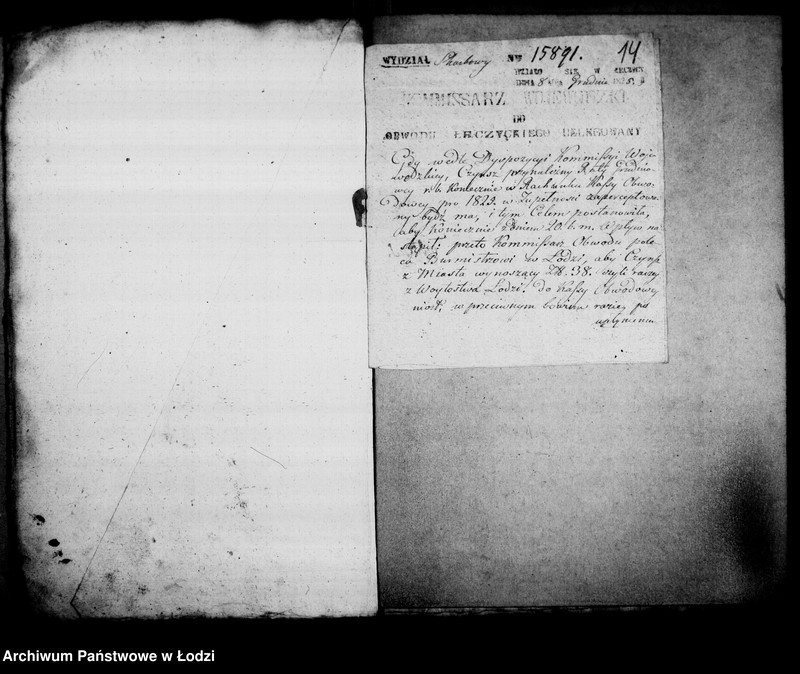 WYDZIAŁ Skarbowy Nº 15891. 14
DZIAŁO SIĘ W ŁĘCZYCY
DNIA 8 Grudnia 1825
KOMMISSARZ WOJEWODZKI
DO
OBWODU ŁĘCZYCKIEGO DELEGOWANY
Gdy wedle Dyspozycyi Kommissyi Woje-
wodzkiey, Czynsz przynależny Raty Grudnio-
wey r. b. koniecznie w Rachunku Kassy Obwo-
dowey pro 1825. w Zupełności zaperceptowa-
ny bydź ma, i tym Celem postanowiła,
aby koniecznie z Dniem 20. b. m. wpływ na-
stąpił; przeto Kommissarz Obwodu pole-
ca Burmistrzowi w Łodzi, aby Czynsz
z Miasta wynoszący Zł. 38. czyli raczey
z Woytostwa Łodzi do Kassy Obwodowey
niósł, w przeciwnym bowiem razie, po
upłynieniu
Archiwum Państwowe w Łodzi